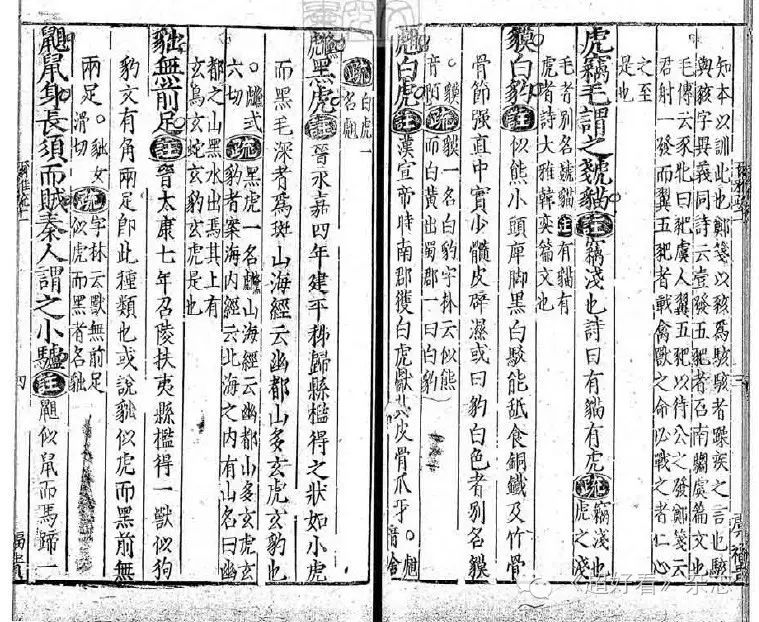 知本以訓此也鄭箋以豥爲駭駭者躁疾之言也駭
與豥字異義同詩云壹發五豝者召南騶虞篇文也
毛傳云豕牝曰豝虞人翼五豝以待公之發鄭箋云
君射一發而翼五豝者戰禽獸之命必戰之者仁心
之至
是也
虎竊毛謂之虦貓注竊淺也詩曰有貓有虎疏竊淺也
虎之淺
毛者別名虦貓注有貓有
虎者詩大雅韓奕篇文也
貘白豹注似熊小頭庳脚黑白駁能舐食銅鐵及竹骨
骨節强直中實少髓皮辟濕或曰豹白色者別名貘
。貘
音陌
疏貘一名白豹字林云似熊
而白黃出蜀郡一曰白豹
甝白虎注漢宣帝時南郡獲白虎獻其皮骨爪牙。甝
音含
疏白虎一
名甝
虪黑虎注晉永嘉四年建平秭歸縣檻得之狀如小虎
而黑毛深者爲斑山海經云幽都山多玄虎玄豹也
。虪式
六切
疏黑虎一名虪山海經云幽都山多玄虎玄
豹者案海內經云北海之內有山名曰幽
都之山黑水出焉其上有
玄鳥玄蛇玄豹玄虎是也
貀無前足注晉太康七年召陵扶夷縣檻得一獸似狗
豹文有角兩足即此種類也或說貀似虎而黑前無
兩足。貀女
滑切
疏字林云獸無前足
似虎而黑者名貀
鼳鼠身長須而賊秦人謂之小驢注鼳似鼠而馬蹄一
四
《超好看》杂志